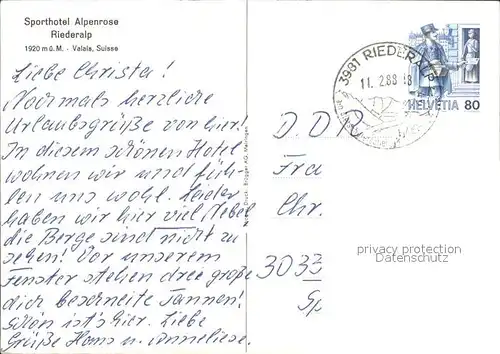 Sporthotel Alpenrose
Riederalp
1920 m ü. M. - Valais, Suisse
Liebe Christa!
Nochmals herzliche
Urlaubsgrüße von hier!
In diesem schönen Hotel
wohnen wir und füh-
len uns wohl. Leider
haben wir hier viel Nebel
die Berge sind nicht zu
sehen! Vor unserem
Fenster stehen drei große
dick beschneite Tannen!
Schön ist's hier. Liebe
Grüße Hans u. Anneliese.
Druck: Brügger AG, Meiringen
3981 RIEDERALP
11. 2.88
HELVETIA 80
DDR
Fra
Chr.
privacy protection
Datenschutz
3033
Sp